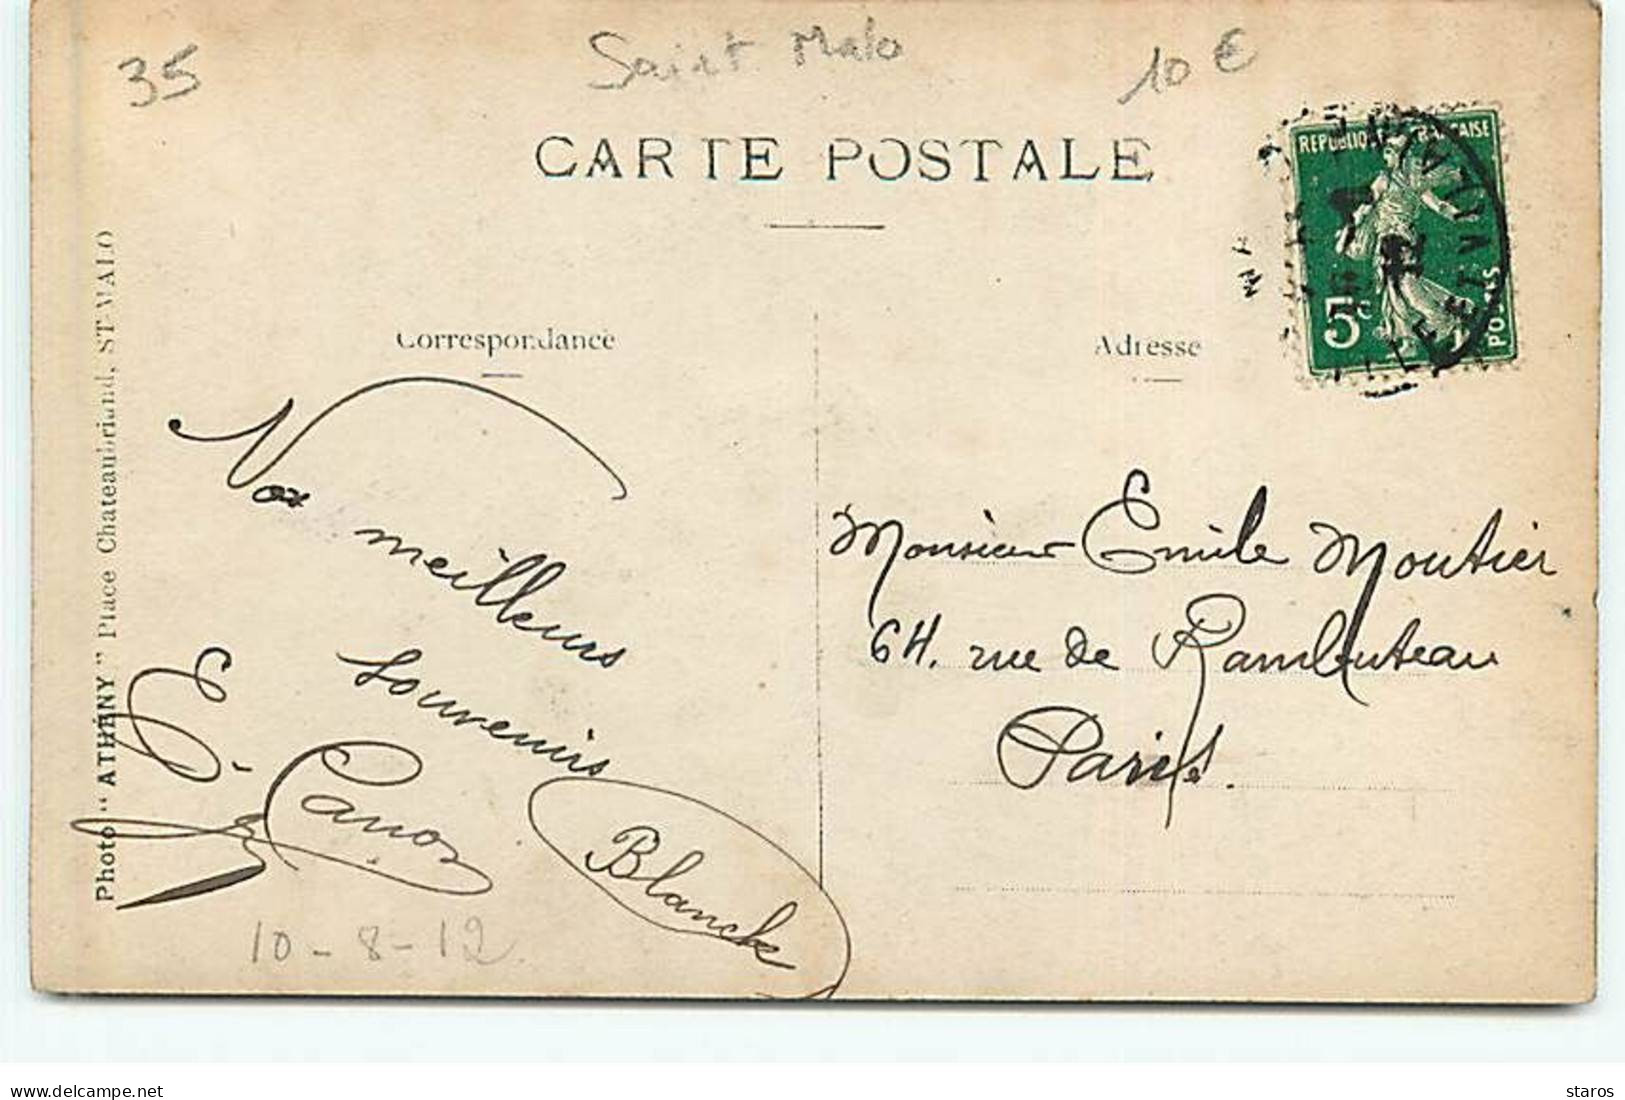 35
Saint Malo
10 €
CARTE POSTALE
REPUBLIQUE FRANÇAISE
5c
POSTES
Correspondance
Adresse
Nos meilleurs
souvenirs
Blanck
10-8-12
Monsieur Emile Moutier
64, rue de Rambuteau
Paris.
Photo "ATHÉNY" Place Chateaubriand, ST-MALO
delcampe.net
staros